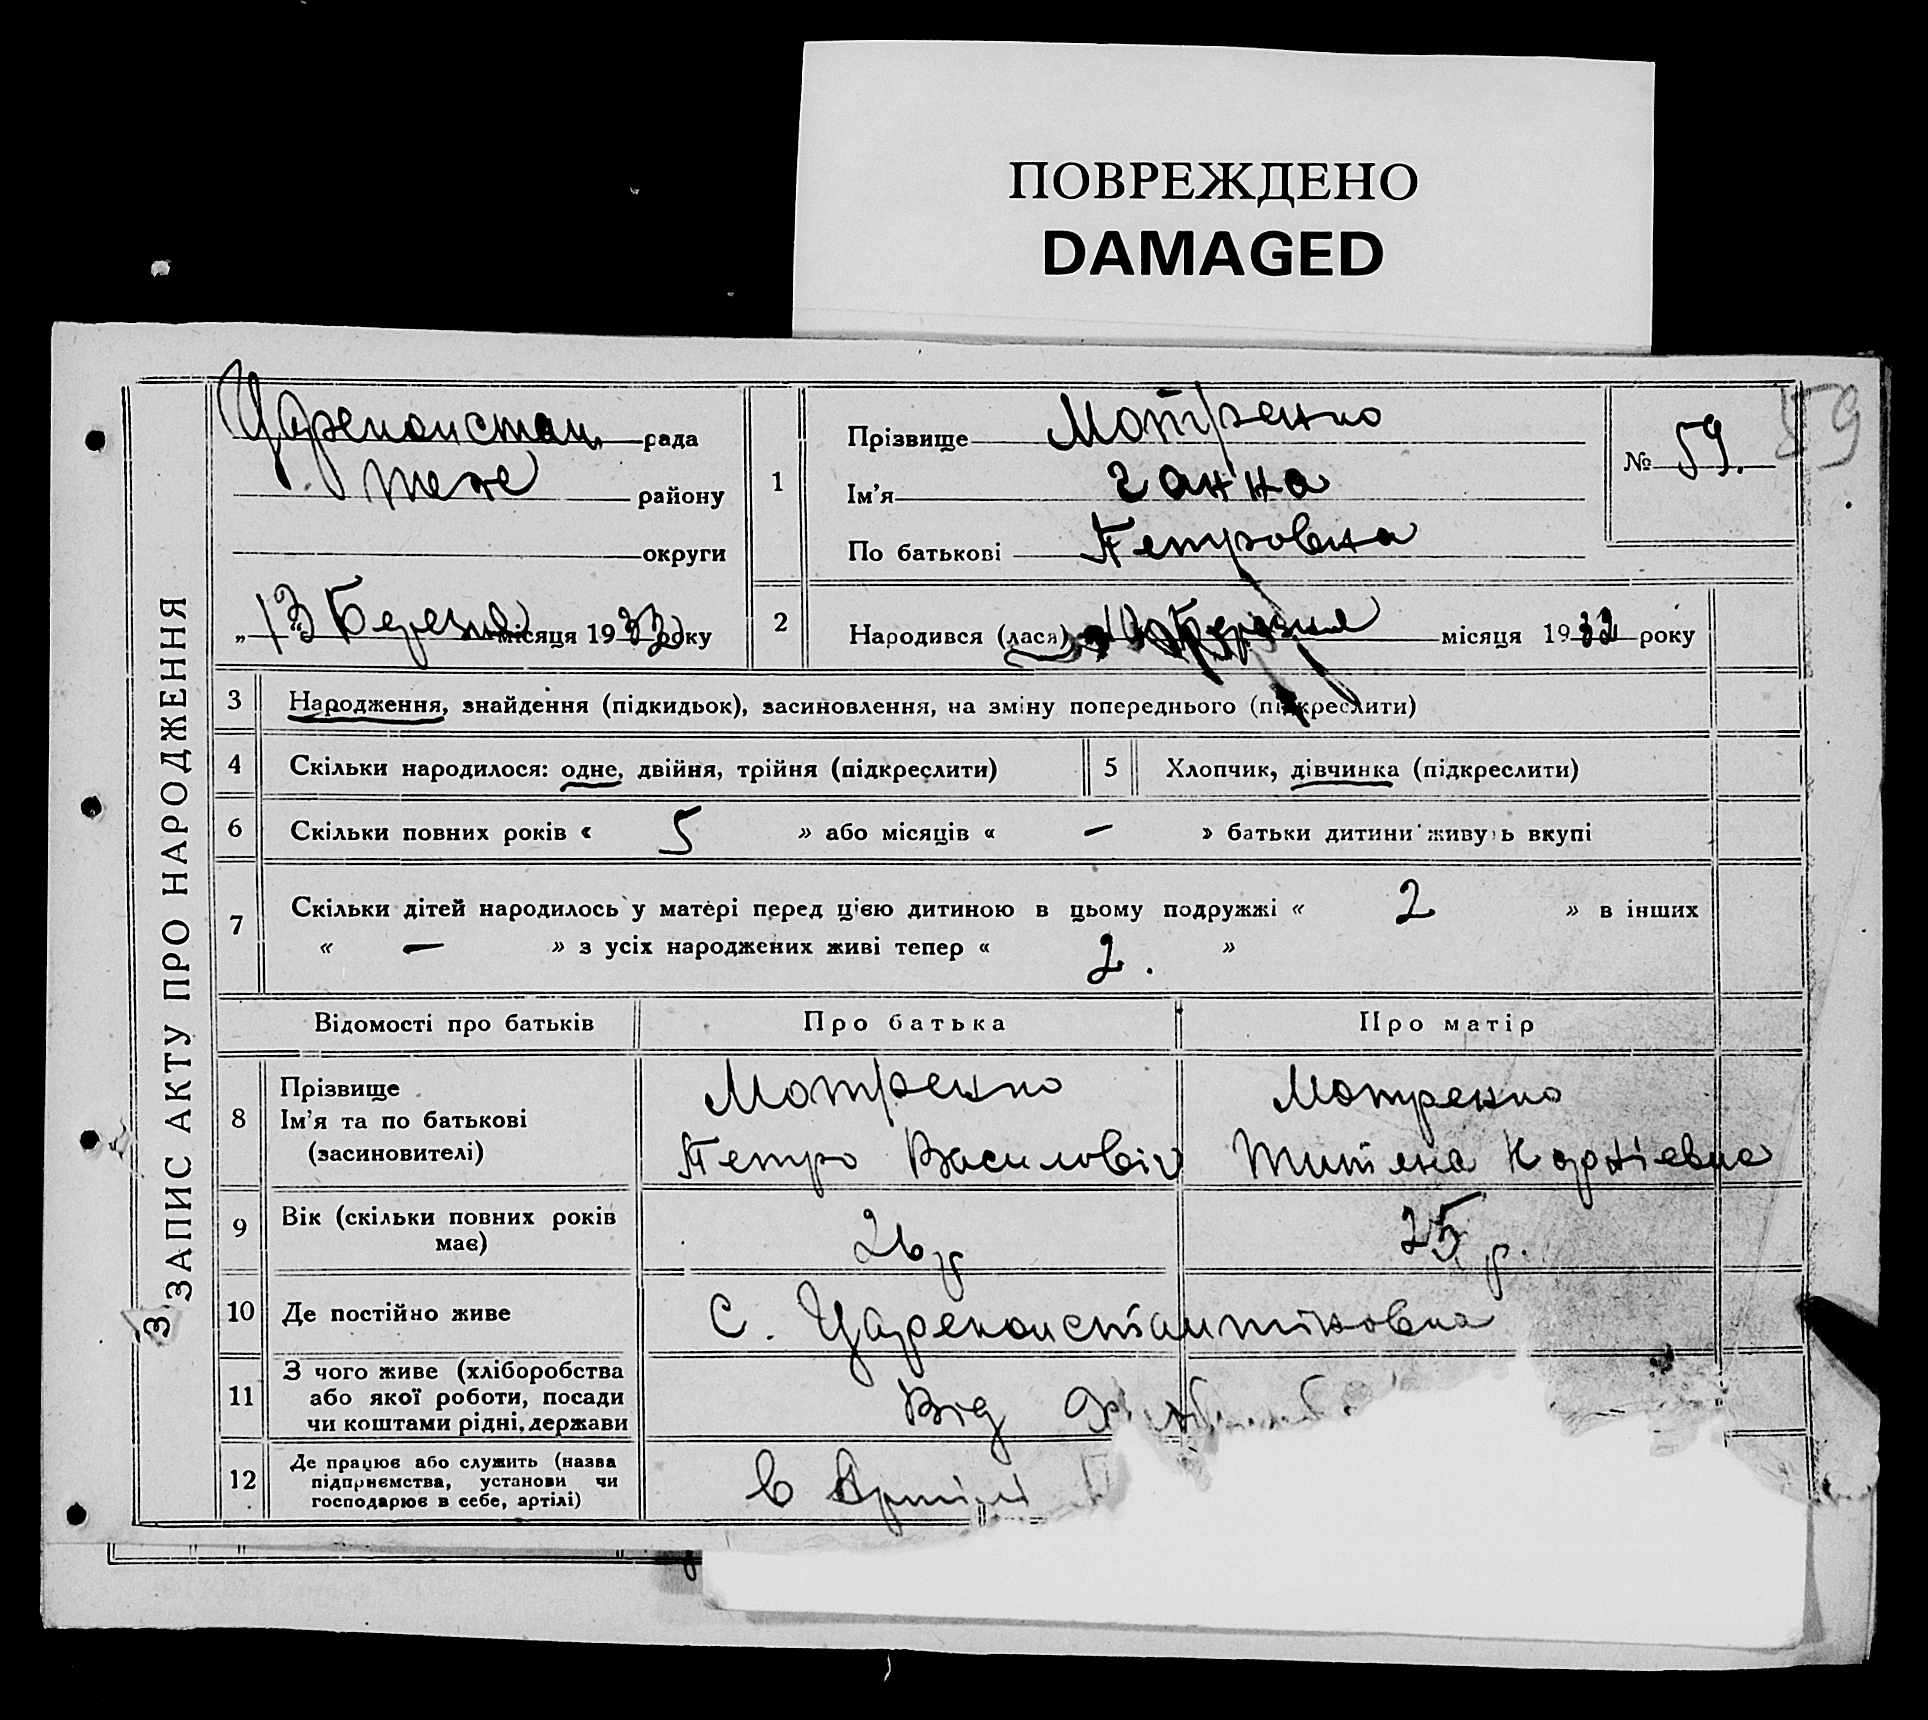 ПОВРЕЖДЕНО
DAMAGED
59
Цареконстан. рада
теж району
округи
„13" Березня місяця 1933 року
1
Прізвище Мотренко
Ім'я Ганна
По батькові Петровна
№ 59.
2
Народився (лася) Березня місяця 1933 року
ЗАПИС АКТУ ПРО НАРОДЖЕННЯ
З
3 Народження, знайдення (підкидьок), засиновлення, на зміну попереднього (підкреслити)
4 Скільки народилося: одне, двійня, трійня (підкреслити)
5 Хлопчик, дівчинка (підкреслити)
6 Скільки повних років « 5 » або місяців « — » батьки дитини живуть вкупі
7 Скільки дітей народилось у матері перед цією дитиною в цьому подружжі « 2 » в інших
« — » з усіх народжених живі тепер « 2. »
Відомості про батьків
Про батька
Про матір
8 Прізвище
Ім'я та по батькові
(засиновителі)
Мотренко
Петро Василовіч
Мотренко
Титяна Корніевна
9 Вік (скільки повних років
має)
26 р
25 р.
10 Де постійно живе
С. Цареконстантіновка
11 З чого живе (хліборобства
або якої роботи, посади
чи коштами рідні, держави
Від
12 Де працює або служить (назва
підприємства, установи чи
господарює в себе, артілі)
в Артілі